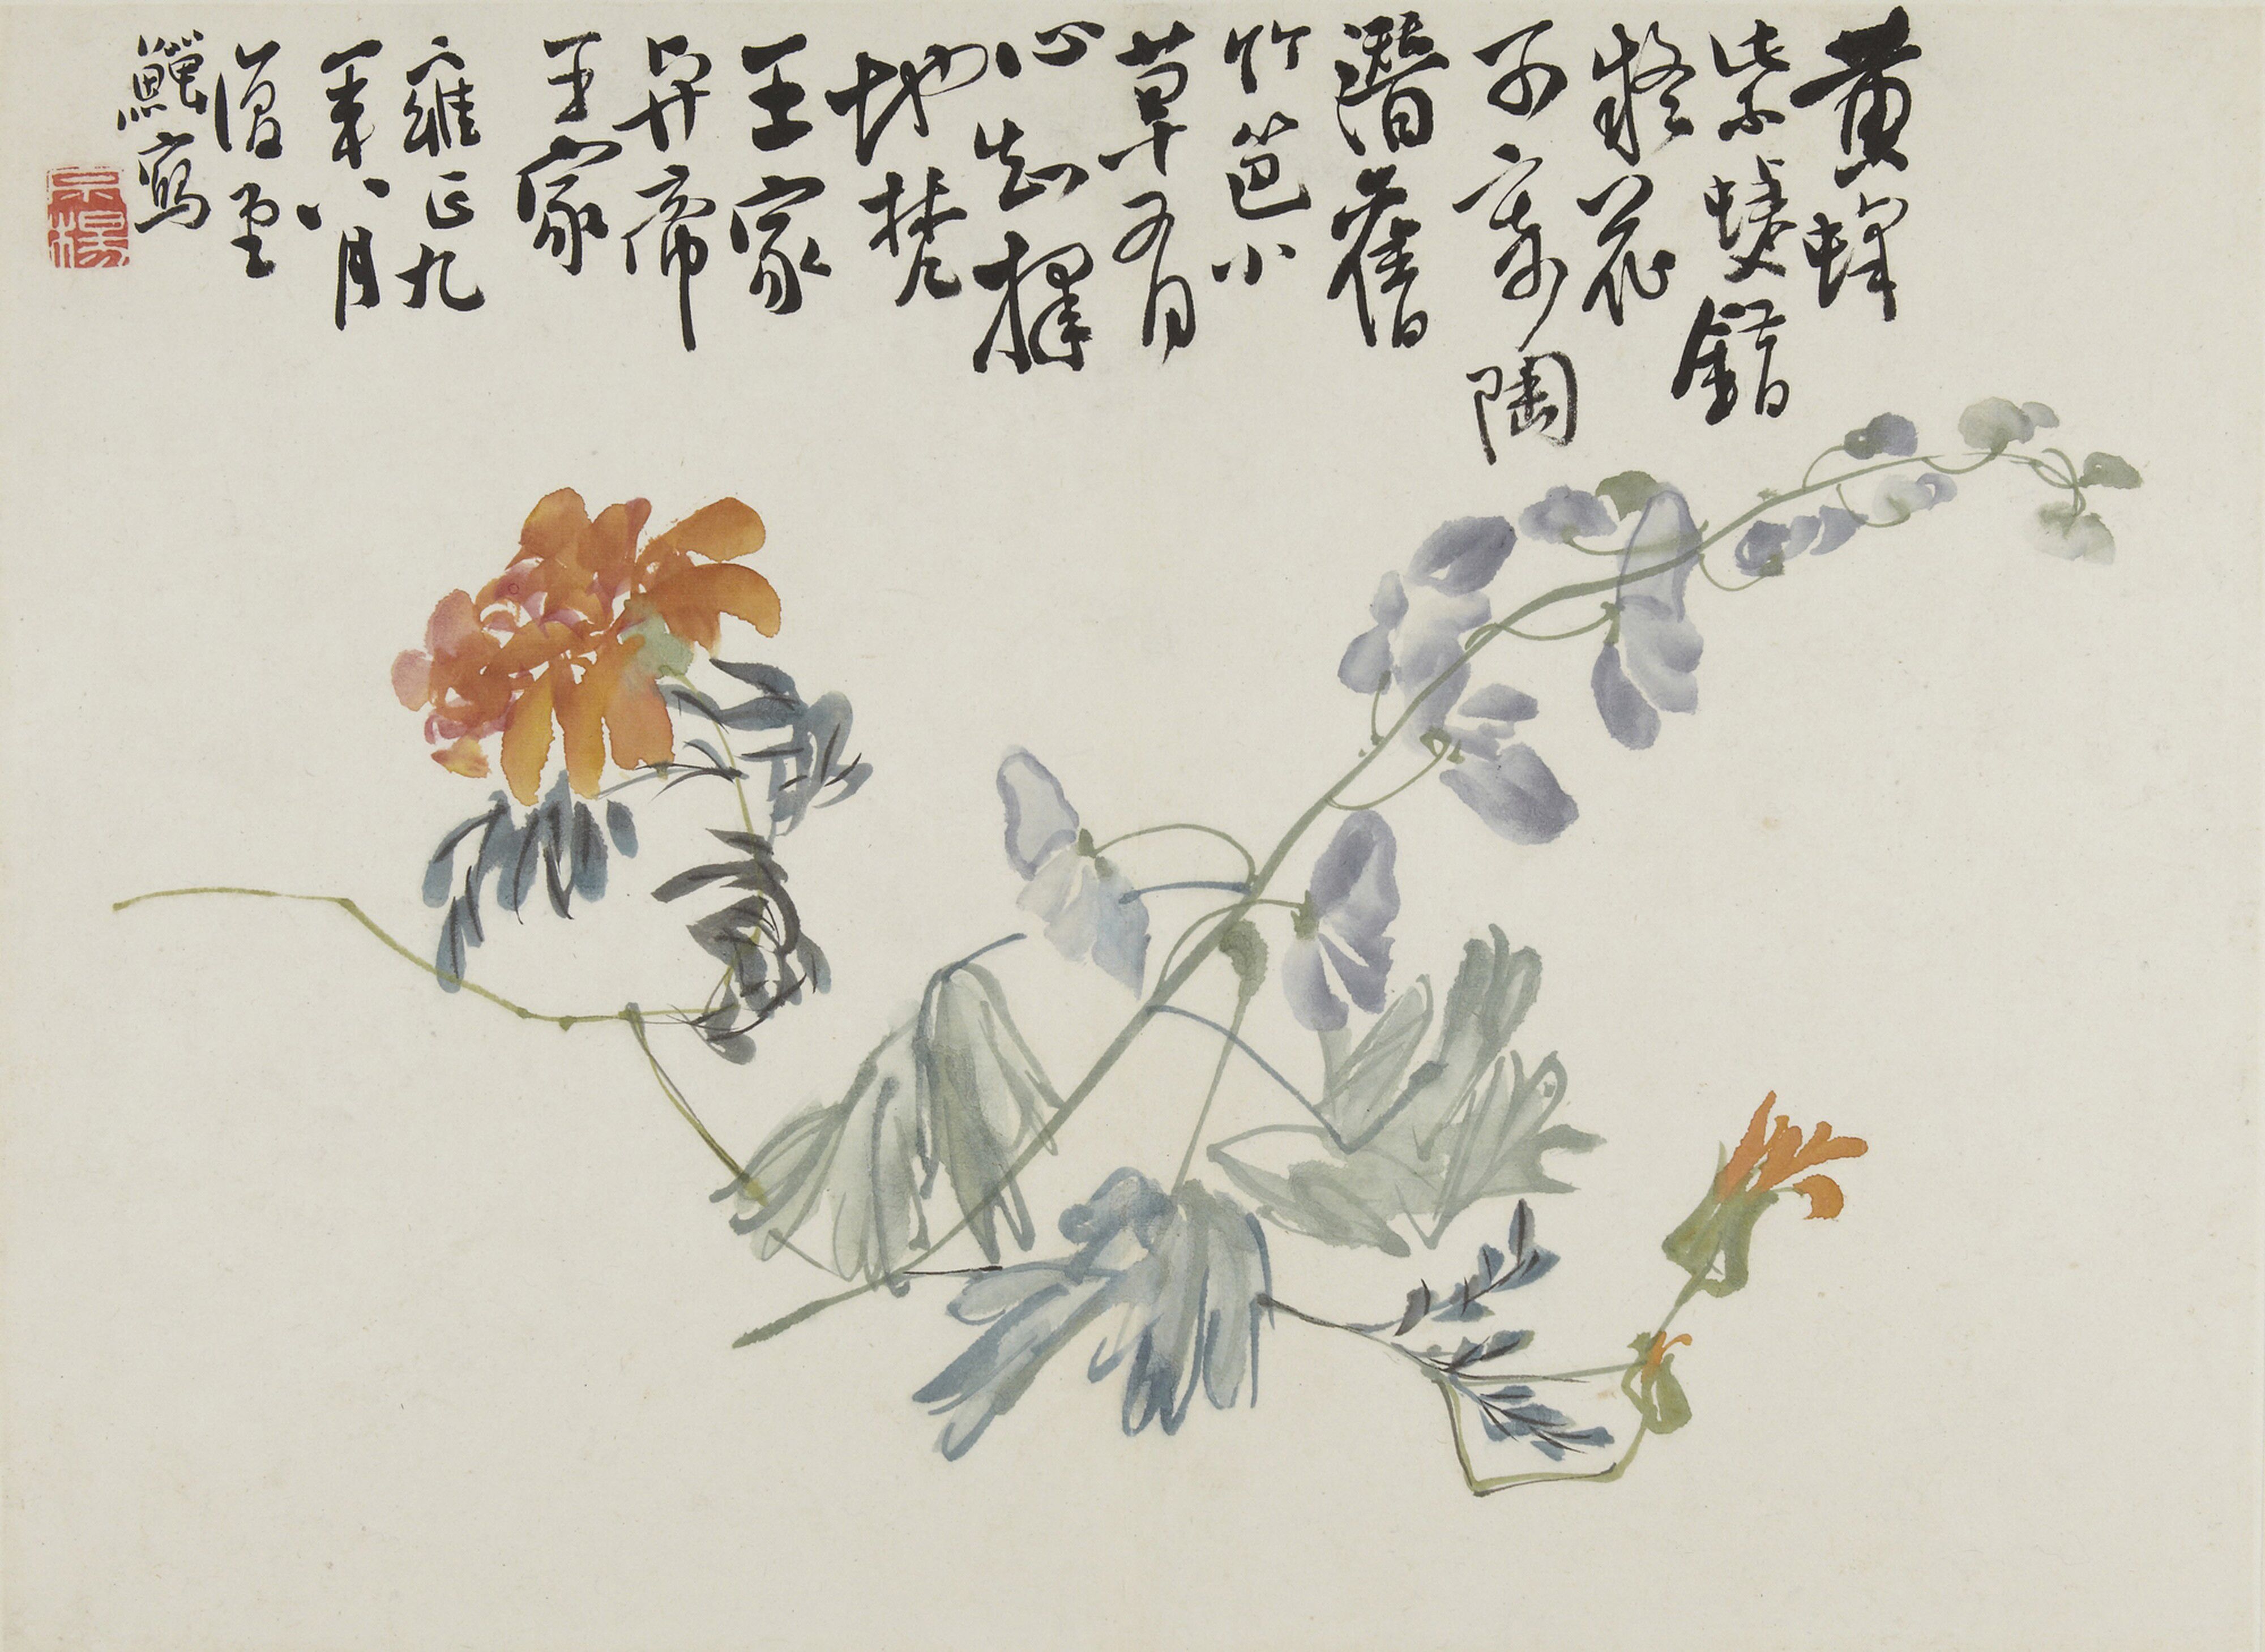 黄蜂
紫蝶錯
疑花
不寄陶
潛舊
竹笆小
草有
心知擇
地梵
王家
與帝
王家
雍正九
年八月
復堂
鱓寫
宗揚